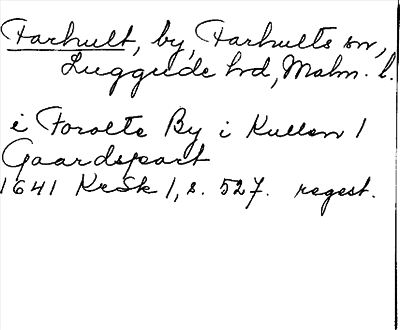 Farhult, by, Farhults sn,
Luggude hd, Malm. l.
i Forolte By i Kullen 1
Gaardspart
1641 KrSk 1, s. 527. regest.